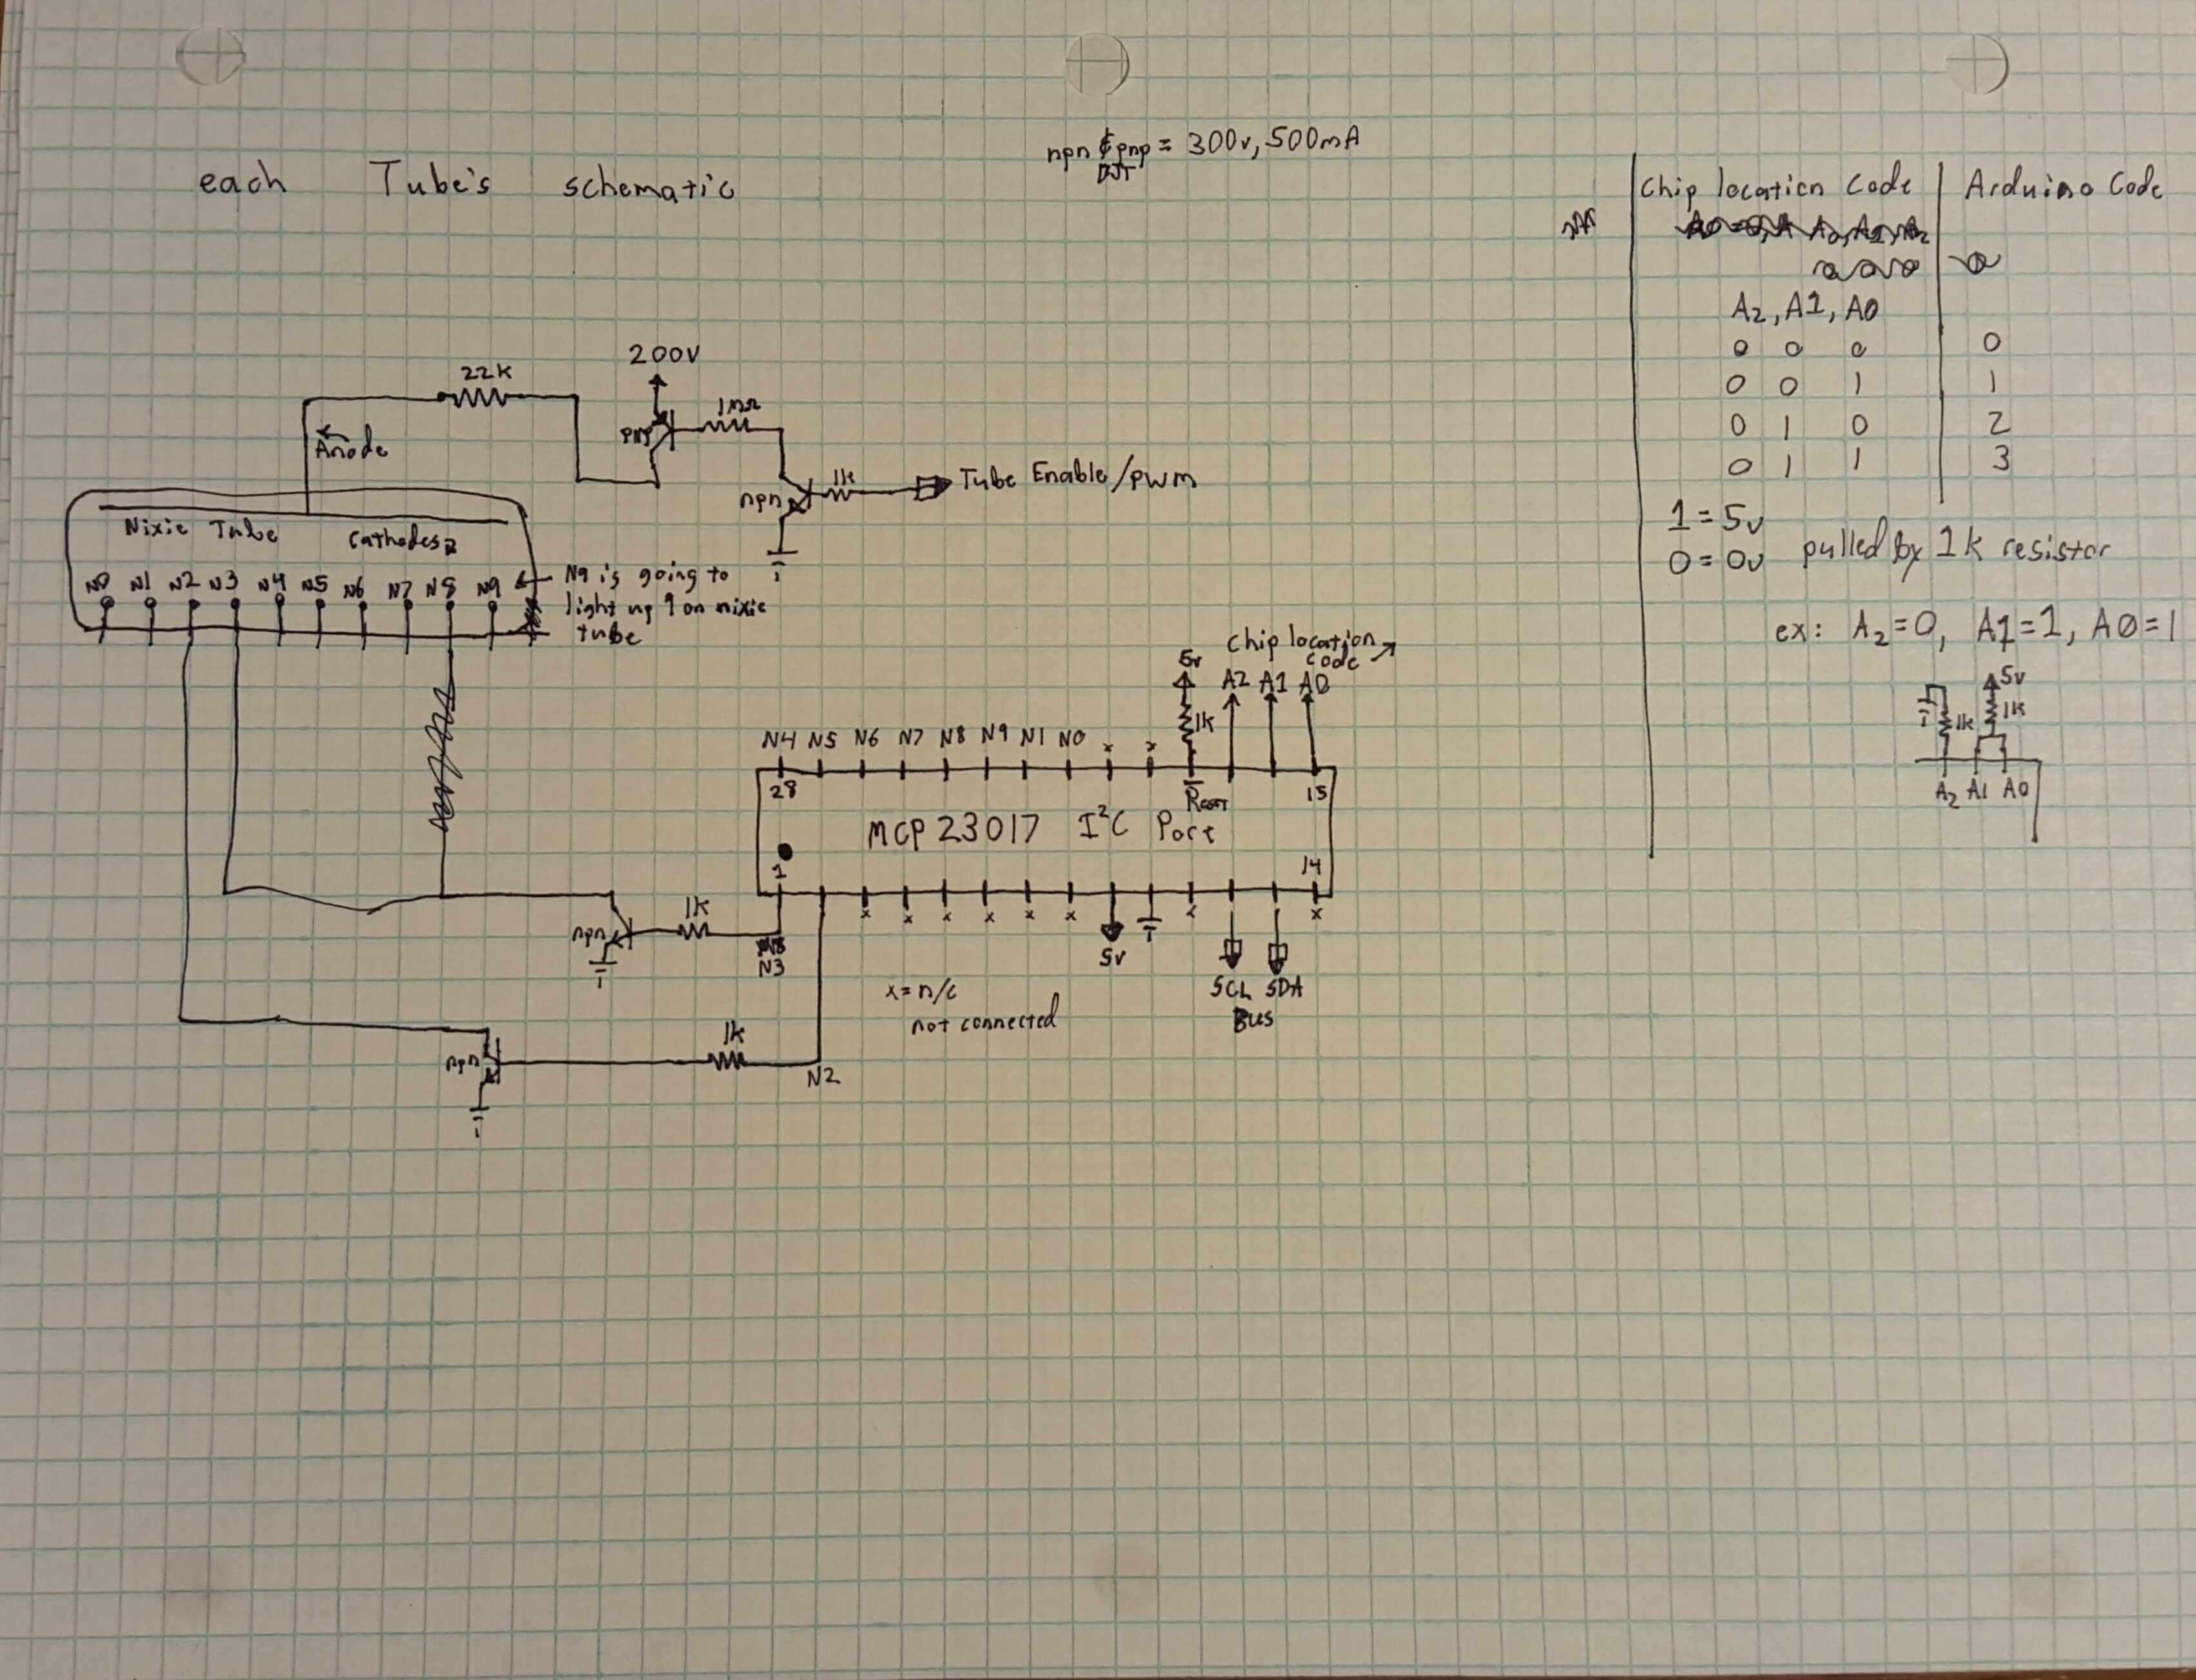 npn & pnp = 300v, 500mA
BJT
each Tube's schematic
Chip location Code | Arduino Code
A2, A1, A0
0 0 0 0
0 0 1 1
0 1 0 2
0 1 1 3
1 = 5v
0 = 0v pulled by 1k resistor
ex: A2=0, A1=1, A0=1
5v
1k 1k
A2 A1 A0
200V
22K
1MΩ
PNP
Anode
1k
Tube Enable/pwm
npn
Nixie Tube Cathodes
N0 N1 N2 N3 N4 N5 N6 N7 N8 N9
N9 is going to
light up 9 on nixie
tube
Chip location
code
5v A2 A1 A0
1k
N4 N5 N6 N7 N8 N9 N1 N0 x x
28 Reset 15
MCP 23017 I²C Port
1 14
x x x x x x x x
5v
1K
npn
N3
SCL SDA
Bus
x = n/c
not connected
1k
npn
N2